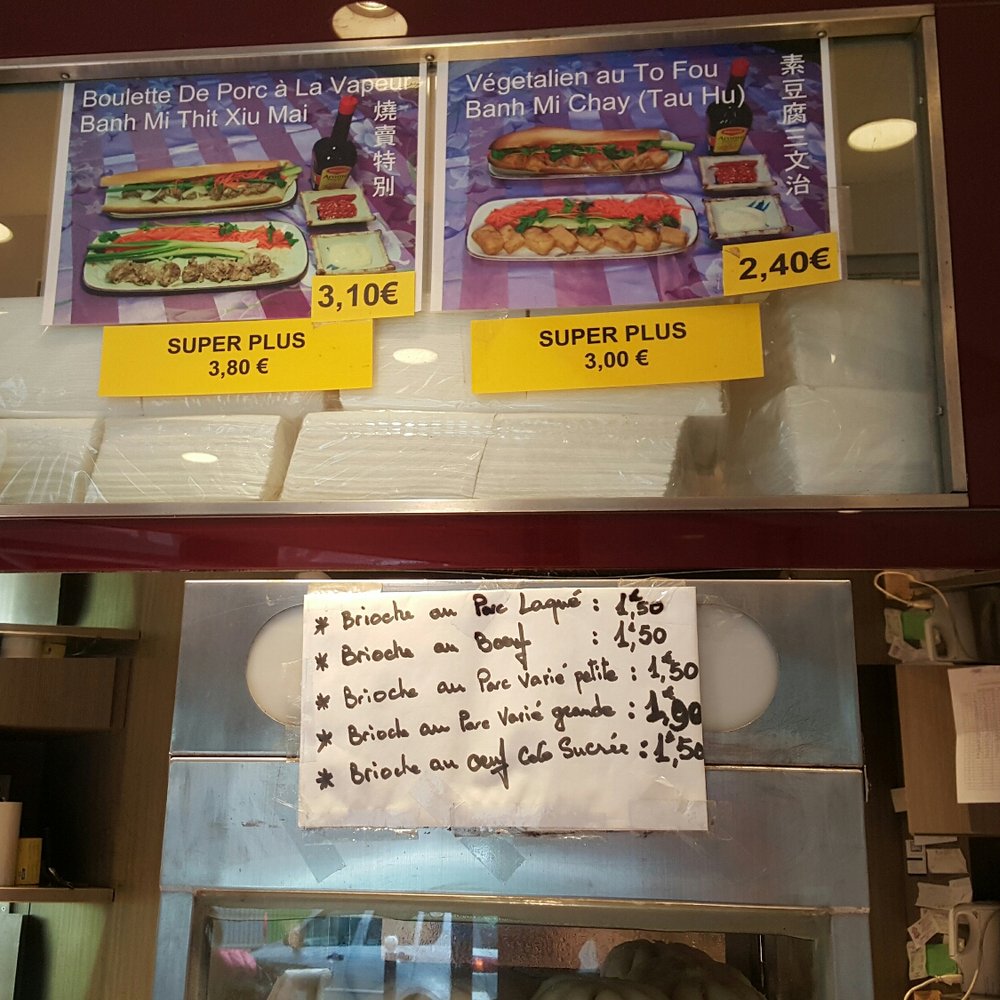 Boulette De Porc à La Vapeur
Banh Mi Thit Xiu Mai
燒賣特別
3,10€
SUPER PLUS
3,80 €
Végetalien au To Fou
Banh Mi Chay (Tau Hu)
素豆腐三文治
2,40€
SUPER PLUS
3,00 €
* Brioche au Porc Laqué : 1€,50
* Brioche au Boeuf : 1€,50
* Brioche au Porc Varié petite : 1€,50
* Brioche au Porc Varié grande : 1€,90
* Brioche au oeuf CoCo Sucrée : 1€,50